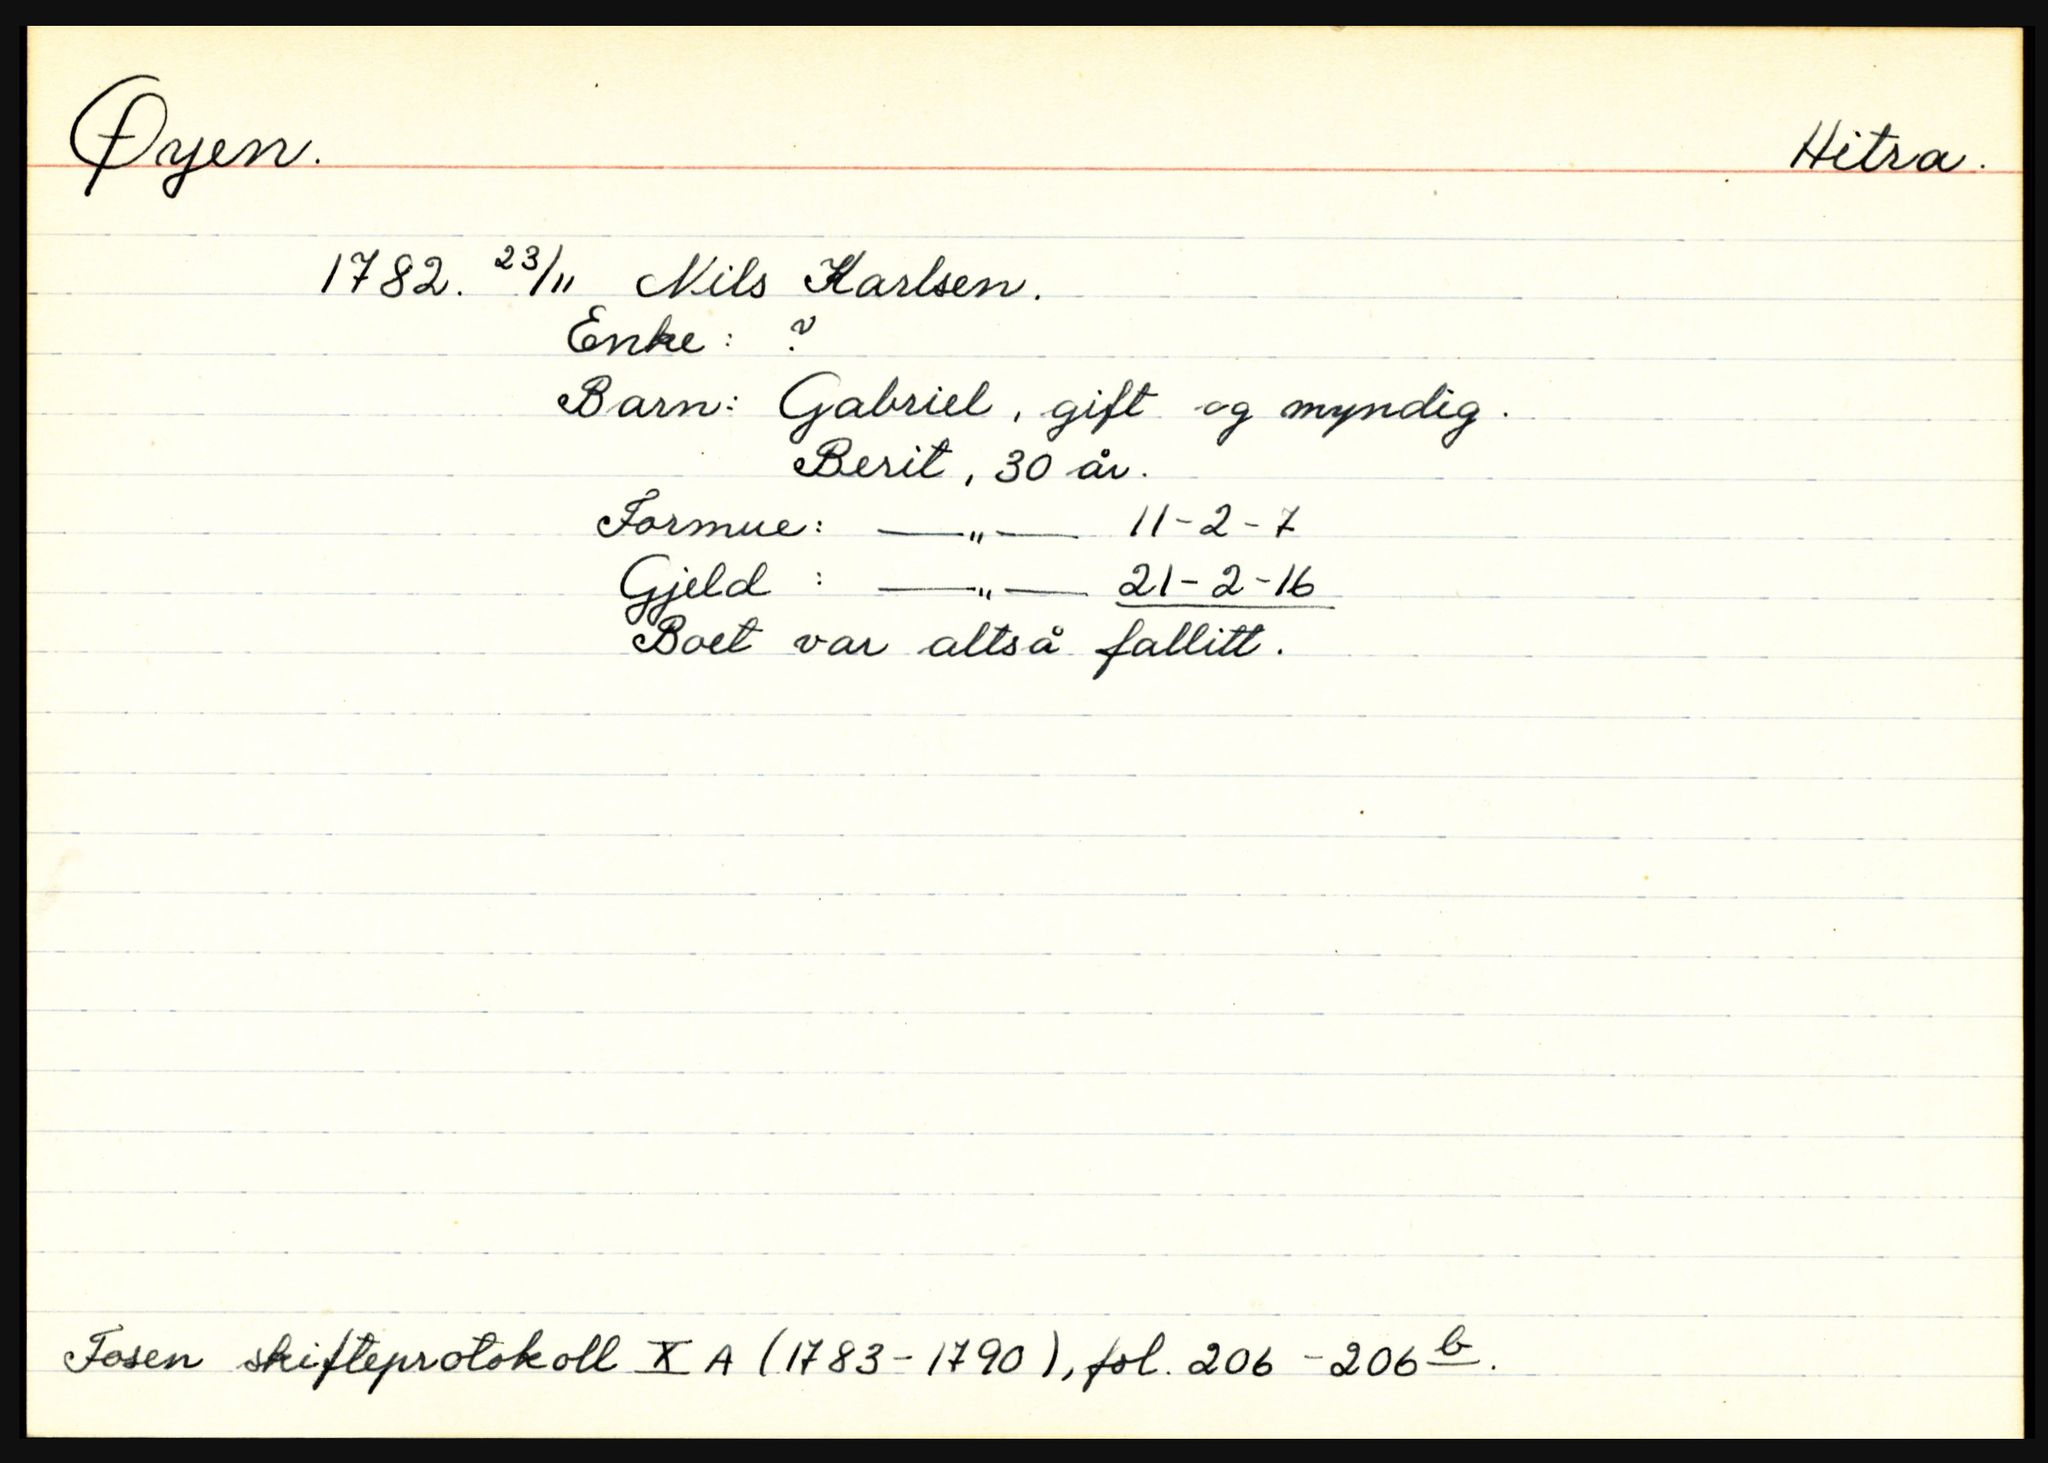 Øyen. Hitra.
1782. 23/11 Nils Karlsen.
Enke: ?
Barn: Gabriel, gift og myndig.
Berit, 30 år.
Formue: —„— 11-2-7
Gjeld : —„— 21-2-16
Boet var altså fallitt.
Fosen skifteprotokoll X A (1783-1790), fol. 206 - 206 b.